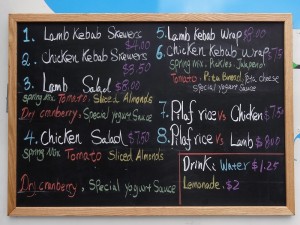 1. Lamb Kebab Skewers
$4.00
2. Chicken Kebab Skewers
$3.50
3. Lamb Salad $8.00
Spring mix Tomato. Sliced Almonds
Dry cranberry, Special yogurt Sauce
4. Chicken Salad $7.50
Spring Mix Tomato Sliced Almonds
Dry cranberry, Special yogurt Sauce
5. Lamb Kebab Wrap $8.00
6. Chicken Kebab Wrap $7.5
Spring mix, Pickles, Jalapeno
Tomato. Pita Bread, feta cheese
special yogurt Sauce
7. Pilaf rice vs Chicken $7.50
8. Pilaf rice vs Lamb $8.00
Drink: Water $1.25
Lemonade. $2